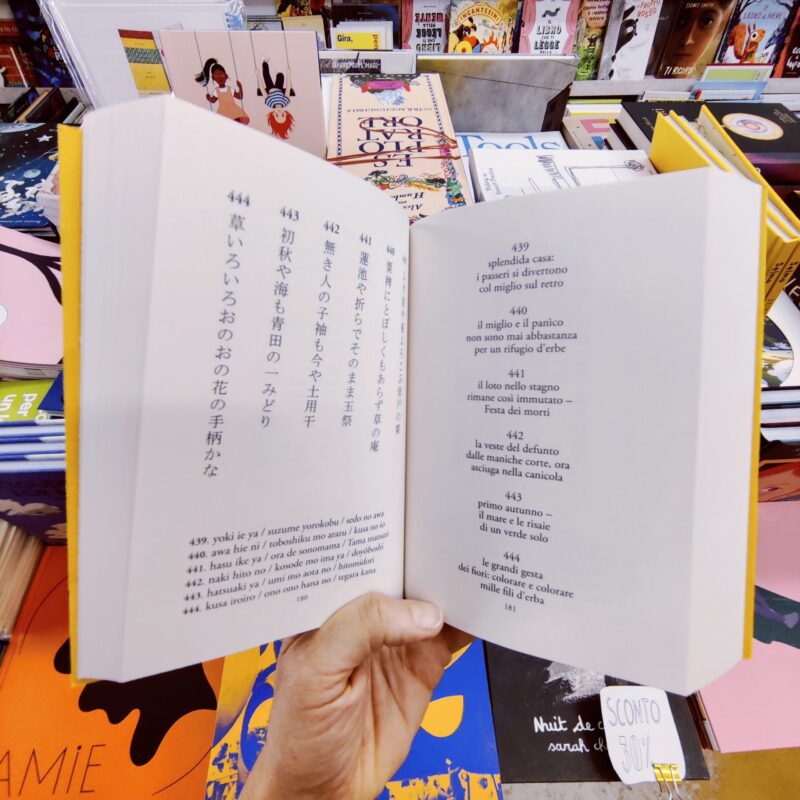 Gira,
INCANTESIMI
IL LIBRO
CHE TI
LEGGE
ROSSO
TI RICORDI
ES
PLO
RAT
ORE
Tools
よき家や雀よろこぶ背戸の粟
440
粟稗にとぼしくもあらず草の庵
441
蓮池や折らでそのまま玉祭
442
無き人の小袖も今や土用干
443
初秋や海も青田の一みどり
444
草いろいろおのおの花の手柄かな
439. yoki ie ya / suzume yorokobu / sedo no awa
440. awa hie ni / toboshiku mo arazu / kusa no io
441. hasu ike ya / ora de sonomama / Tama matsuri
442. naki hito no / kosode mo ima ya / doyōboshi
443. hatsuaki ya / umi mo aota no / hitomidori
444. kusa iroiro / ono ono hana no / tegara kana
180
439
splendida casa:
i passeri si divertono
col miglio sul retro
440
il miglio e il panìco
non sono mai abbastanza
per un rifugio d'erbe
441
il loto nello stagno
rimane così immutato –
Festa dei morti
442
la veste del defunto
dalle maniche corte, ora
asciuga nella canicola
443
primo autunno –
il mare e le risaie
di un verde solo
444
le grandi gesta
dei fiori: colorare e colorare
mille fili d'erba
181
AMIE
Nuit de
sarah
SCONTO
30%